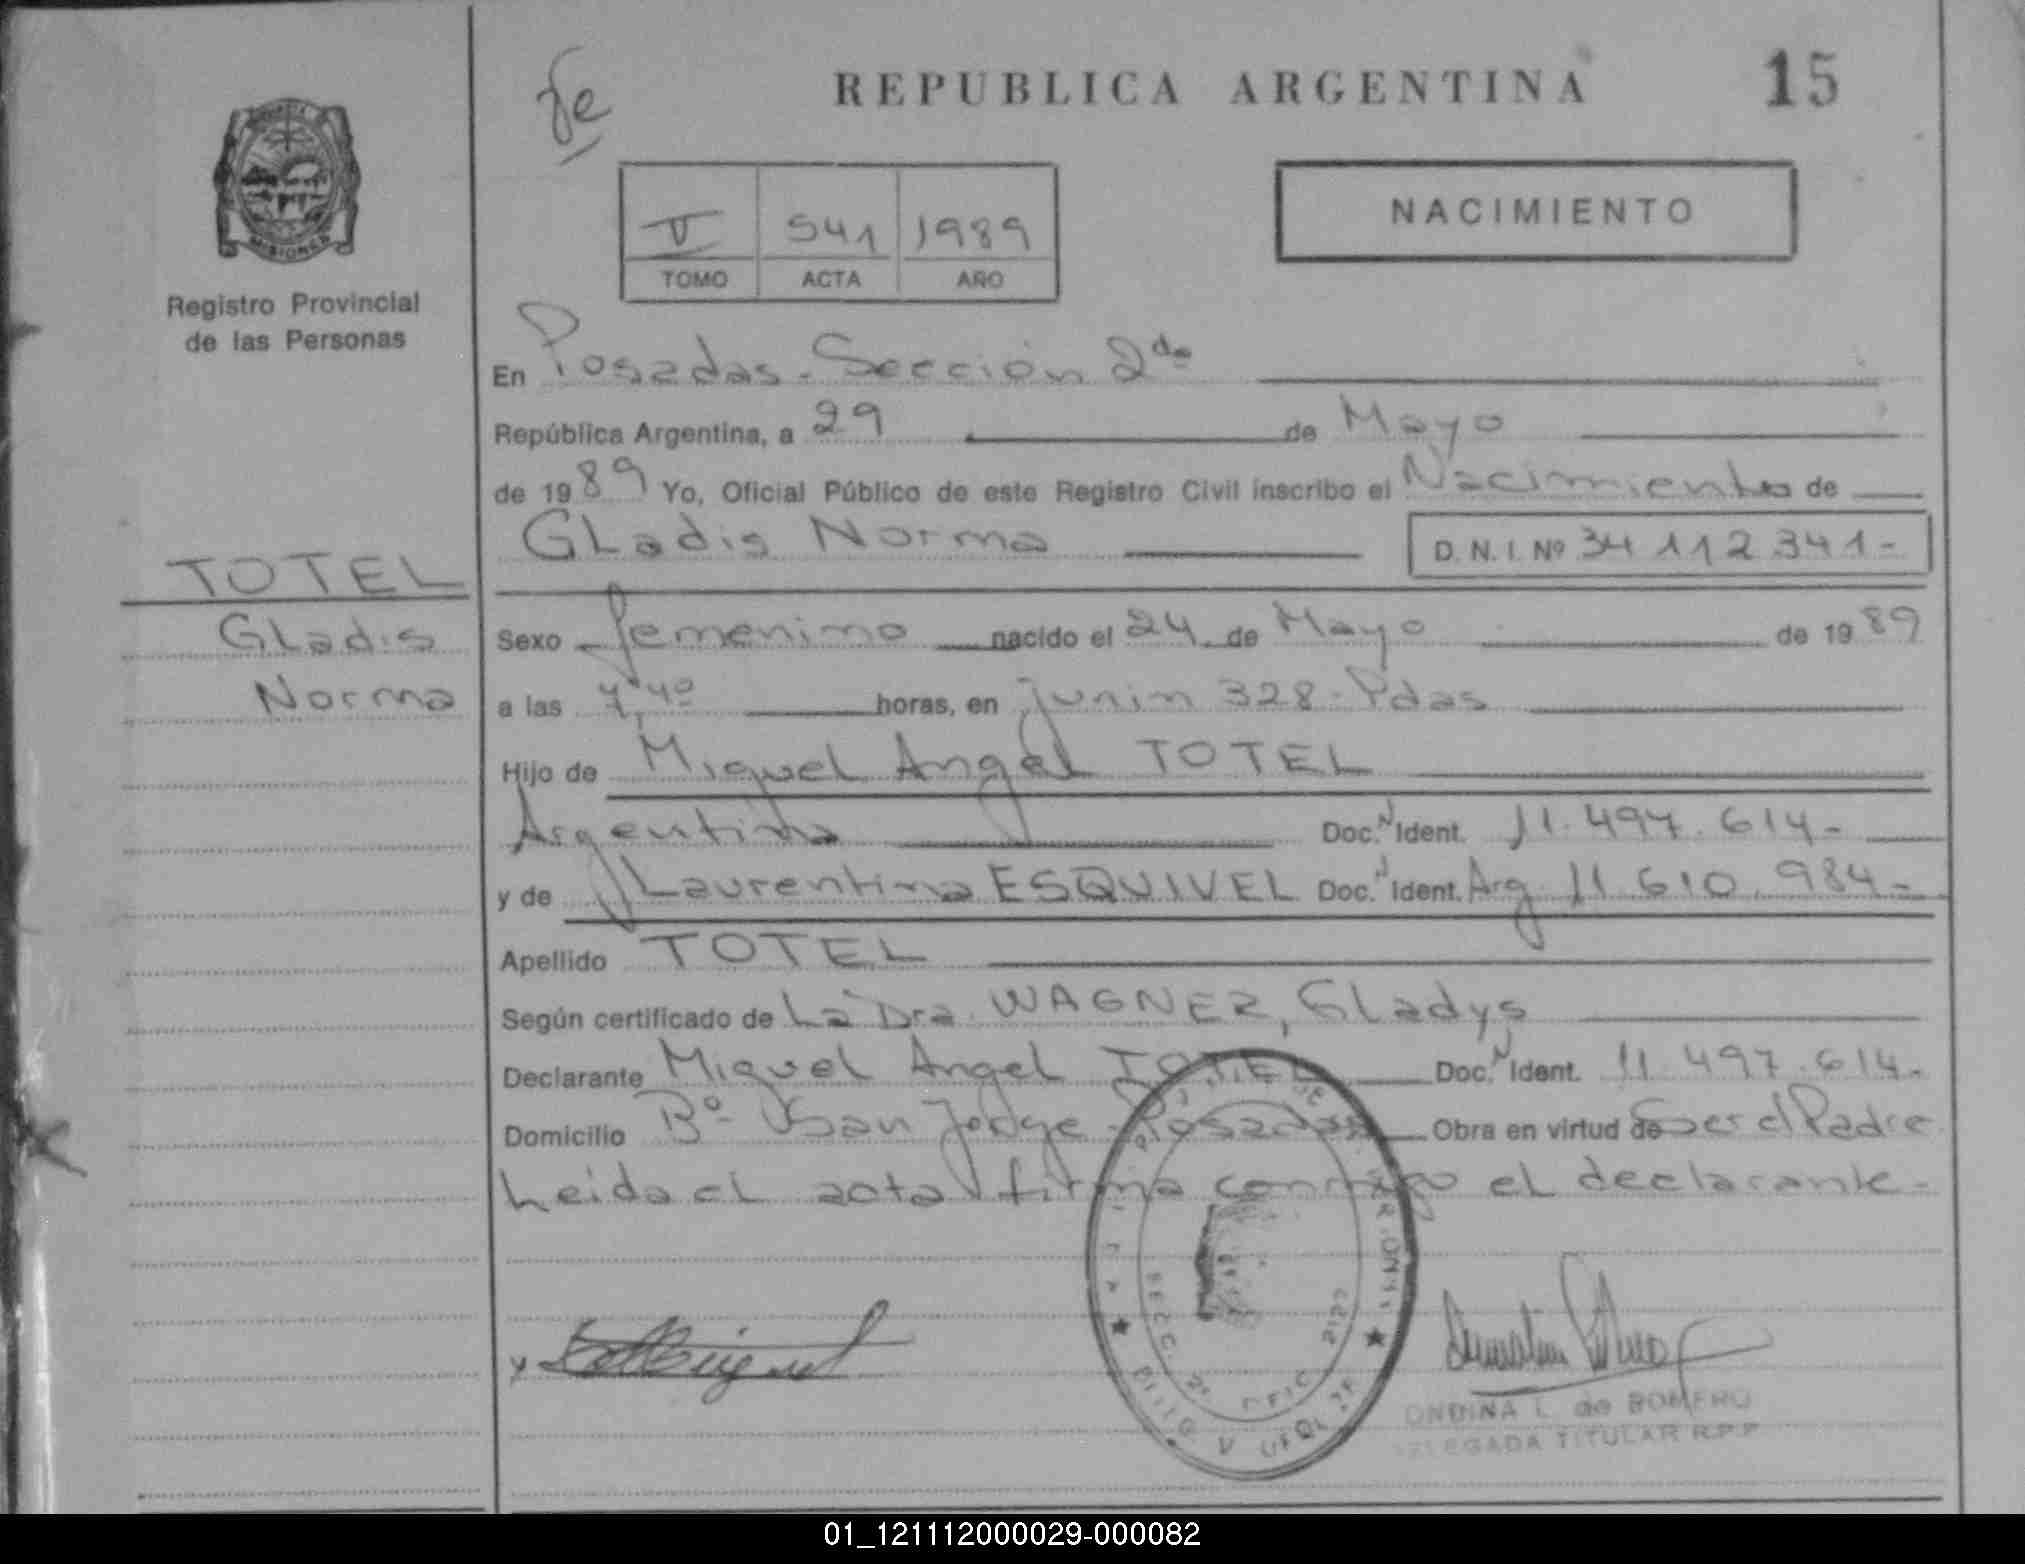 fe
REPUBLICA ARGENTINA
15
MISIONES
Registro Provincial
de las Personas
V 541 1989
TOMO ACTA AÑO
NACIMIENTO
En Posadas - Sección 2da
República Argentina, a 29 de Mayo
de 1989 Yo, Oficial Público de este Registro Civil inscribo el Nacimiento de
Gladis Norma
D. N. I. Nº 34 112 341-
TOTEL
Gladis
Norma
Sexo femenino nacido el 24 de Mayo de 1989
a las horas, en junin 328 - Pdas
Hijo de Miguel Angel TOTEL
Argentina Doc. N Ident. 11.497.614-
y de Laurentina ESQUIVEL Doc. N Ident. Arg 11 610.984-
Apellido TOTEL
Según certificado de La Dra. WAGNER, Gladys
Declarante Miguel Angel TOTEL Doc. N Ident. 11.497.614-
Domicilio Bº San Jorge - Posadas Obra en virtud de Ser el Padre
Leida el acta firma conmigo el declarante -
SECC. 2º
ONDINA L. de ROMERO
DELEGADA TITULAR R.P.P
01_121112000029-000082